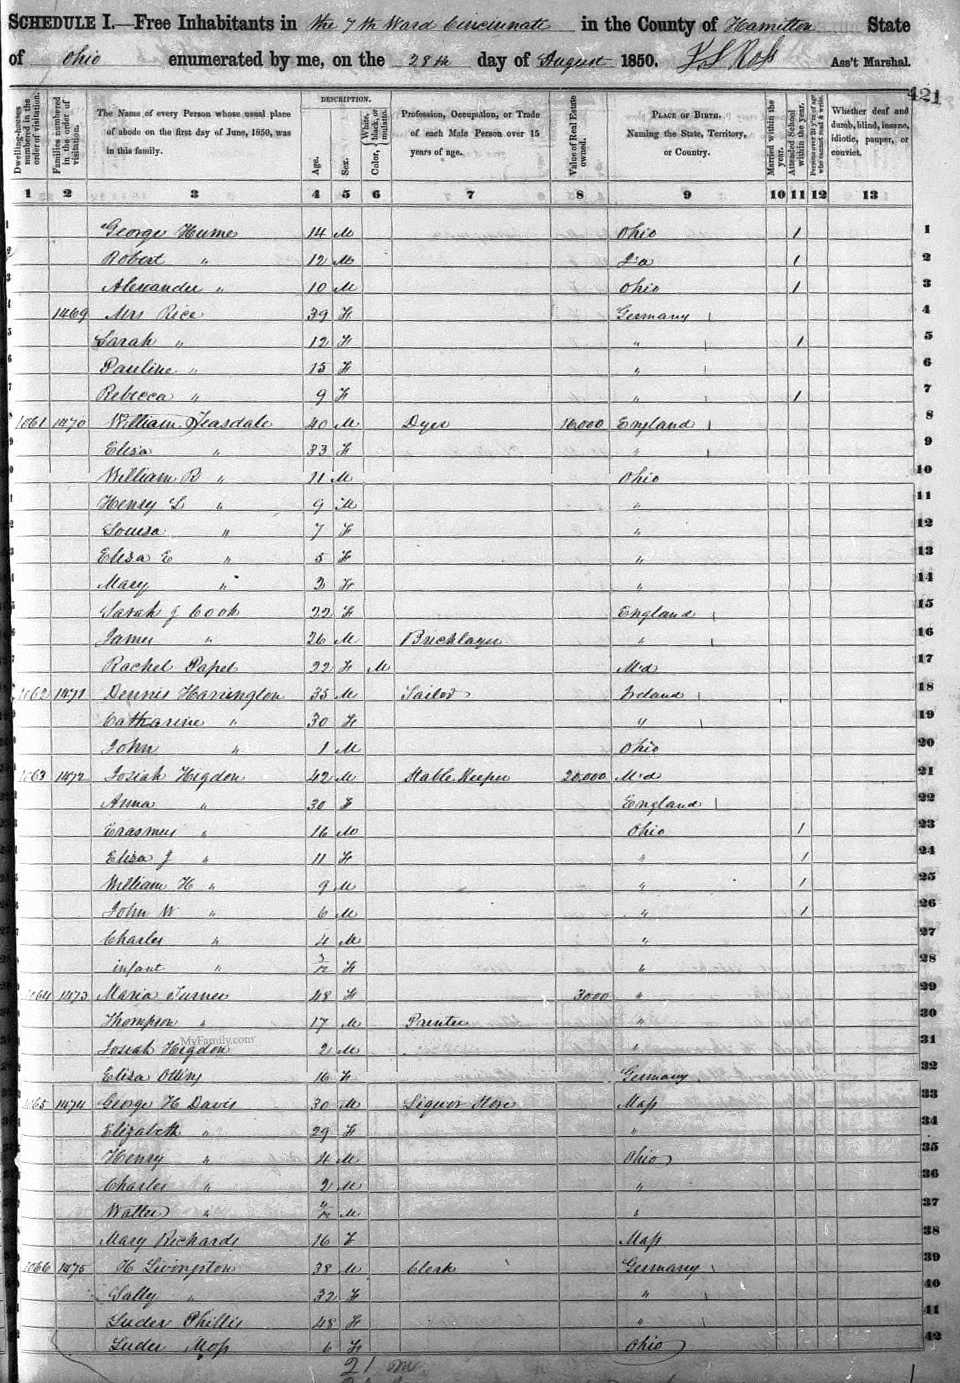 SCHEDULE I.—Free Inhabitants in the 7th Ward Cincinnati in the County of Hamilton State
of Ohio enumerated by me, on the 28th day of August 1850. Ass't Marshal.
421
Dwelling-houses numbered in the order of visitation.
Families numbered in the order of visitation.
The Name of every Person whose usual place of abode on the first day of June, 1850, was in this family.
DESCRIPTION.
Age.
Sex.
Color, White, black, or mulatto.
Profession, Occupation, or Trade of each Male Person over 15 years of age.
Value of Real Estate owned.
PLACE OF BIRTH. Naming the State, Territory, or Country.
Married within the year.
Attended School within the year.
Persons over 20 y'rs of age who cannot read & write.
Whether deaf and dumb, blind, insane, idiotic, pauper, or convict.
1 2 3 4 5 6 7 8 9 10 11 12 13
George Hume 14 M Ohio 1 1
Robert " 12 M 1 2
Alexander " 10 M Ohio 1 3
1469 Mrs Rice 39 F Germany 4
Sarah " 12 F " 1 5
Pauline " 15 F " 6
Rebecca " 9 F " 1 7
1061 1470 William Teasdale 40 M Dyer 16,000 England 8
Eliza " 33 F " 9
William B " 11 M Ohio 10
Henry L " 9 M " 11
Louisa " 7 F " 12
Eliza E " 5 F " 13
Mary " 2 F " 14
Sarah J Cook 22 F England 15
James " 26 M Bricklayer " 16
Rachel Papel 22 F M Md 17
1062 1471 Dennis Harrington 35 M Tailor Ireland 18
Catharine " 30 F " 19
John " 1 M Ohio 20
1063 1472 Josiah Higdon 42 M Stable Keeper 20,000 Md 21
Anna " 30 F England 22
Erasmus " 16 M Ohio 1 23
Eliza J " 11 F " 1 24
William H " 9 M " 1 25
John W " 6 M " 1 26
Charles " 4 M " 27
infant " 3/12 F " 28
1064 1473 Maria Turner 48 F 3000 " 29
Thompson " 17 M Printer " 30
MyFamily.com
Josiah Higdon 2 M " 31
Eliza Otting 16 F Germany 32
1065 1474 George H Davis 30 M Liquor Store Mass 33
Elizabeth " 29 F " 34
Henry " 4 M Ohio 35
Charles " 2 M " 36
Walter " M " 37
Mary Richards 16 F Mass 38
1066 1475 H Livingston 38 M Clerk Germany 39
Sally " 32 F " 40
Luder Phillis 48 F " 41
Luder Moss 6 F Ohio 42
21 m